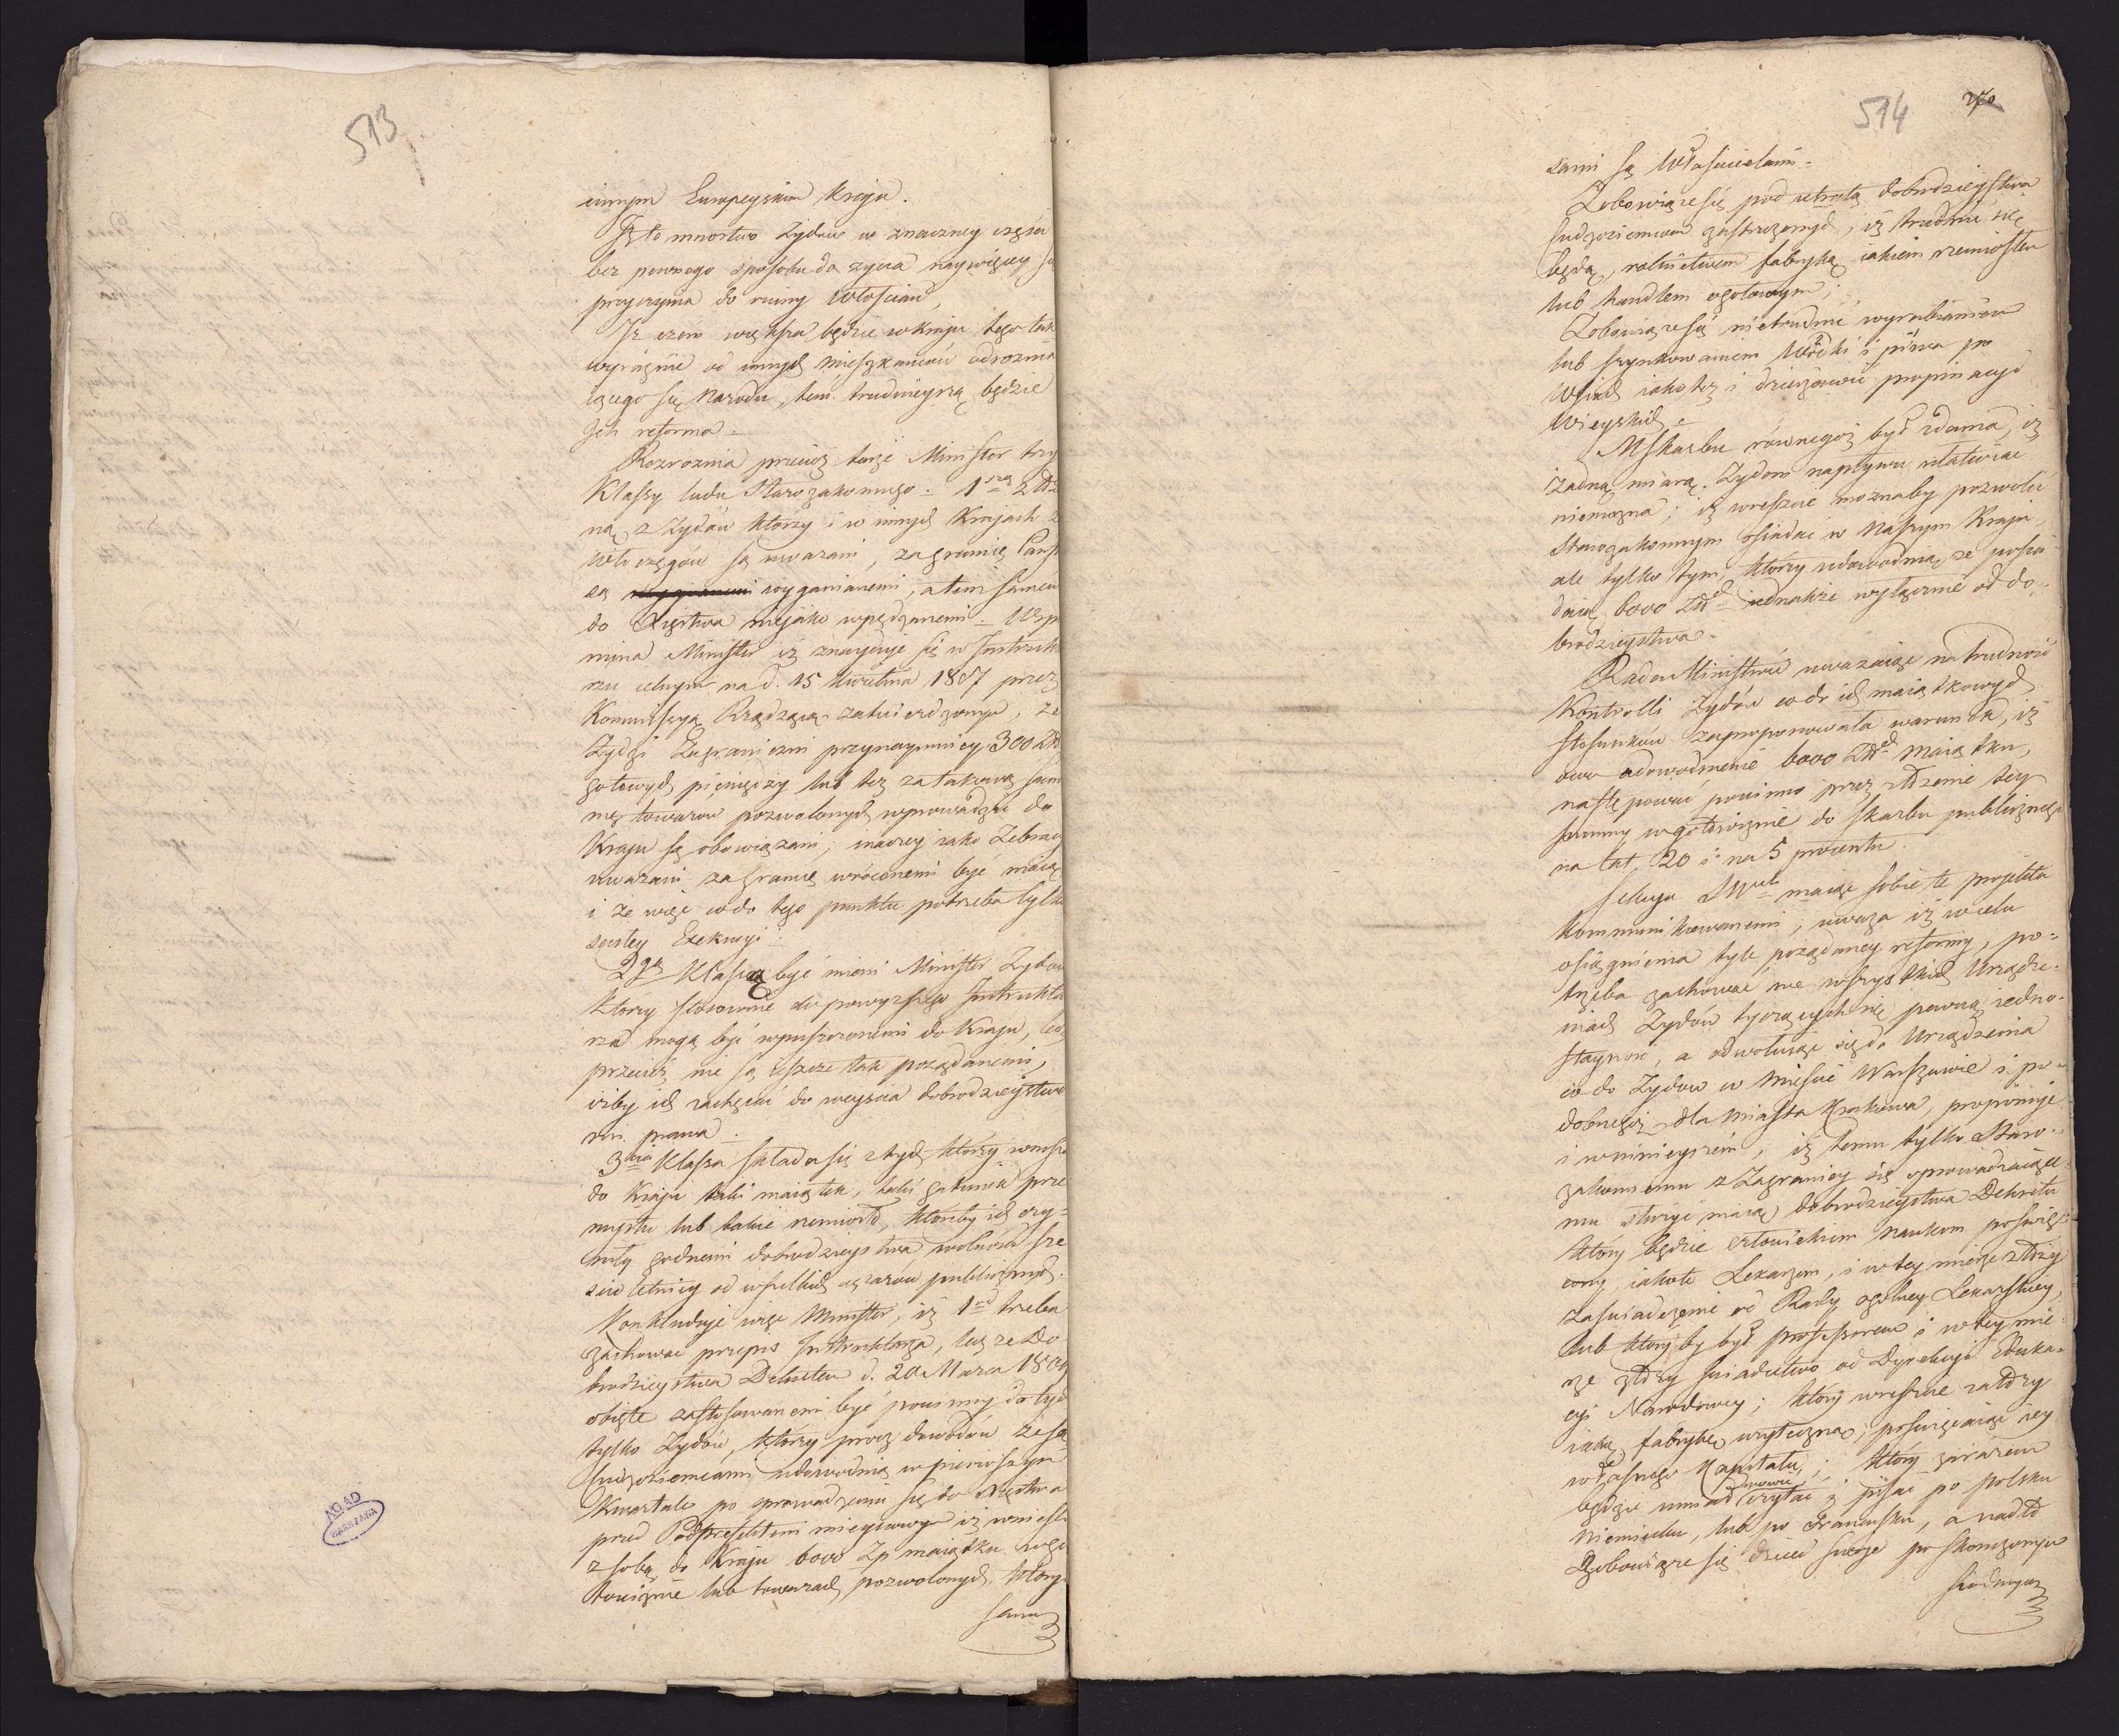 513
innym Europeyskim Kraju.
Iż to mnostwo Zydów w znaczney częsci
bez pewnego sposobu do zycia naywięcey się
przyczynia do ruiny Włoscian,
Iż czem większa będzie w kraju tego tak
wyraznie od innych mieszkancow odroznia
iącego się Narodu, tem trudnieyszą będzie
Ich reforma.
Rozroznia przeciesz tenże Minister trzy
Klassy ludu Starozakonnego: 1szą
ną z Zydów którzy i w innych Krajach za
Włoczęgów są uwazani, za granicę Panst
są wyganianemi, a tem samem
do Xięstwa niejako wpędzanemi. Wspo
mina Minister iż znayduje się w Instrukta
rzu celnym na d. 15 Kwietnia 1807 przez
Kommissyą Rządzącą zatwierdzonym, że
Zydzi Zagraniczni przynaymniey 300 Złł
gotowych pieniędzy lub tez za takową sum
mę towarow pozwolonych wprowadzić do
Kraju są obowiązani; inaczey iako Zebracy
uwazani za granicę wróconemi być maią
i że więc co do tego punktu potrzeba tylko
scisłey Exekucyi.
2gą Klassą być mieni Minister Zydów
ktorzy stosownie do powyzszego Instrukta
rza mogą być wpuszczonemi do Kraju, lecz
przecież nie są ieszcze tak pożądanemi,
iżby ich zachęcać do weyscia dobrodzieystwa
mi prawa.
3cia Klassa składa się z tych ktorzy wnoszą
do Kraju taki maiątek, taki gatunek prze
mysłu lub takie rzemiosło, ktoreby ich czy-
niły godnemi dobrodzieystwa, wolnosci sze
scioletniey od wszelkich cięzarów publicznych.
Konkluduje więc Minister, iż 1od trzeba
zachować przepis Instruktarza, lecz ze Do
brodzieystwa Dekretem d. 20 Marca 1809
obięte zastosowanemi być powinny do tych
tylko Zydów, którzy procz dowodów że są
Cudzoziemcami udowodnią w pierwszym
Kwartale po sprowadzeniu się do Xięstwa
przed Podprefektem mieyscowym iż wniesli
z sobą do Kraju 6000 Zp maiątku w go
towiznie lub towarach pozwolonych, których
sami
AGAD
WARSZAWA
514
270
sami są Włascicielami.
Zobowiąze się pod utratą dobrodzieystwa
Cudzoziemcom zastrzezonych, iż trudnić się
będą, rolnictwem fabryką iakiem rzemiosłem
lub handlem ogołowym;
Zobowiąze się nietrudnić wyrabianiem
lub szynkowaniem Wódki i piwa po
Wsiach iako tez i dzierzawić propinacyi
Wieyskich.
M. Skarbu równegoż był zdania, iż
żadną miarą Zydom napływu ułatwiać
niemożna; iż wreszcie moznaby pozwolić
Starozakonnym osiadać w Naszym Kraju,
ale tylko tym, którzy udowodnią, ze posia
daią 6000 Złłch jednakże wyłącznie od do-
brodzieystwa.
Rada Ministrów uwazaiąc na trudność
Kontrolli Zydów co do ich maiątkowych
stosunków zaproponowała warunek, iż
owe udowodnienie 6000 Złłch maiątku,
następować powinno przez złożenie tey
summy w gotowiznie do Skarbu publicznego
na lat 20 i na 5 procentu.
Sekcya maiąc sobie te projekta
kommunikowanemi; uwaza iż w celu
osiągnienia tyle pożądaney reformy, po-
trzeba zachować we wszystkich Urządze-
niach Zydów tyczących się pewną iedno-
staynosć, a odwołując się do Urządzenia
co do Zydów w Miescie Warszawie i po-
dobnegoż dla Miasta Krakowa, proponuje
i w ninieyszem, iż temu tylko Staro-
zakonnemu z Zagranicy się sprowadzaiące
mu służyć maią dobrodzieystwa Dekretu
który będzie człowiekiem Naukom poswię
cony iakoto Lekarzem, i w tey mierze złoży
zaswiadczenie od Rady ogolney Lekarskiey,
lub któryby był professorem i w tey mie
rze złoży swiadectwo od Dyrekcyi Eduka-
cyi Narodowey; który wreszcie założy
iaką fabrykę uzyteczną, poswięcaiąc iey
własnego Kapitału; który zarazem
będzie umiał mowić czytać i pisać po polsku
Niemiecku, lub po Francusku, a nadto
Zobowiąze się dzieci swoje po skonczonym
siodmym